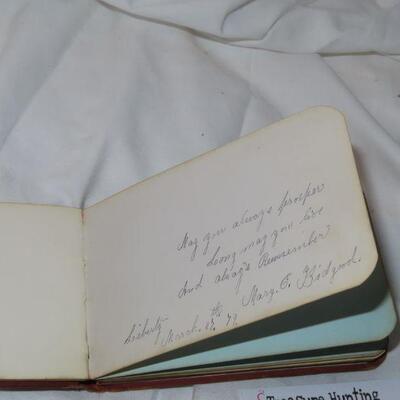 May you always prosper
Long may you live
And always Remember
Mary. E.
Liberty
March. th 79
Treasure Hunting